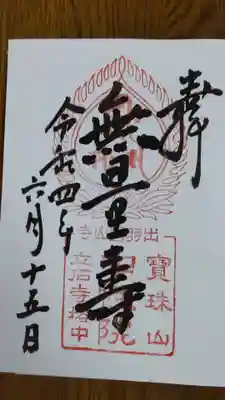 奉
無量壽
令和四年
六月十五日
出羽山寺
寶珠山
立石寺塔中